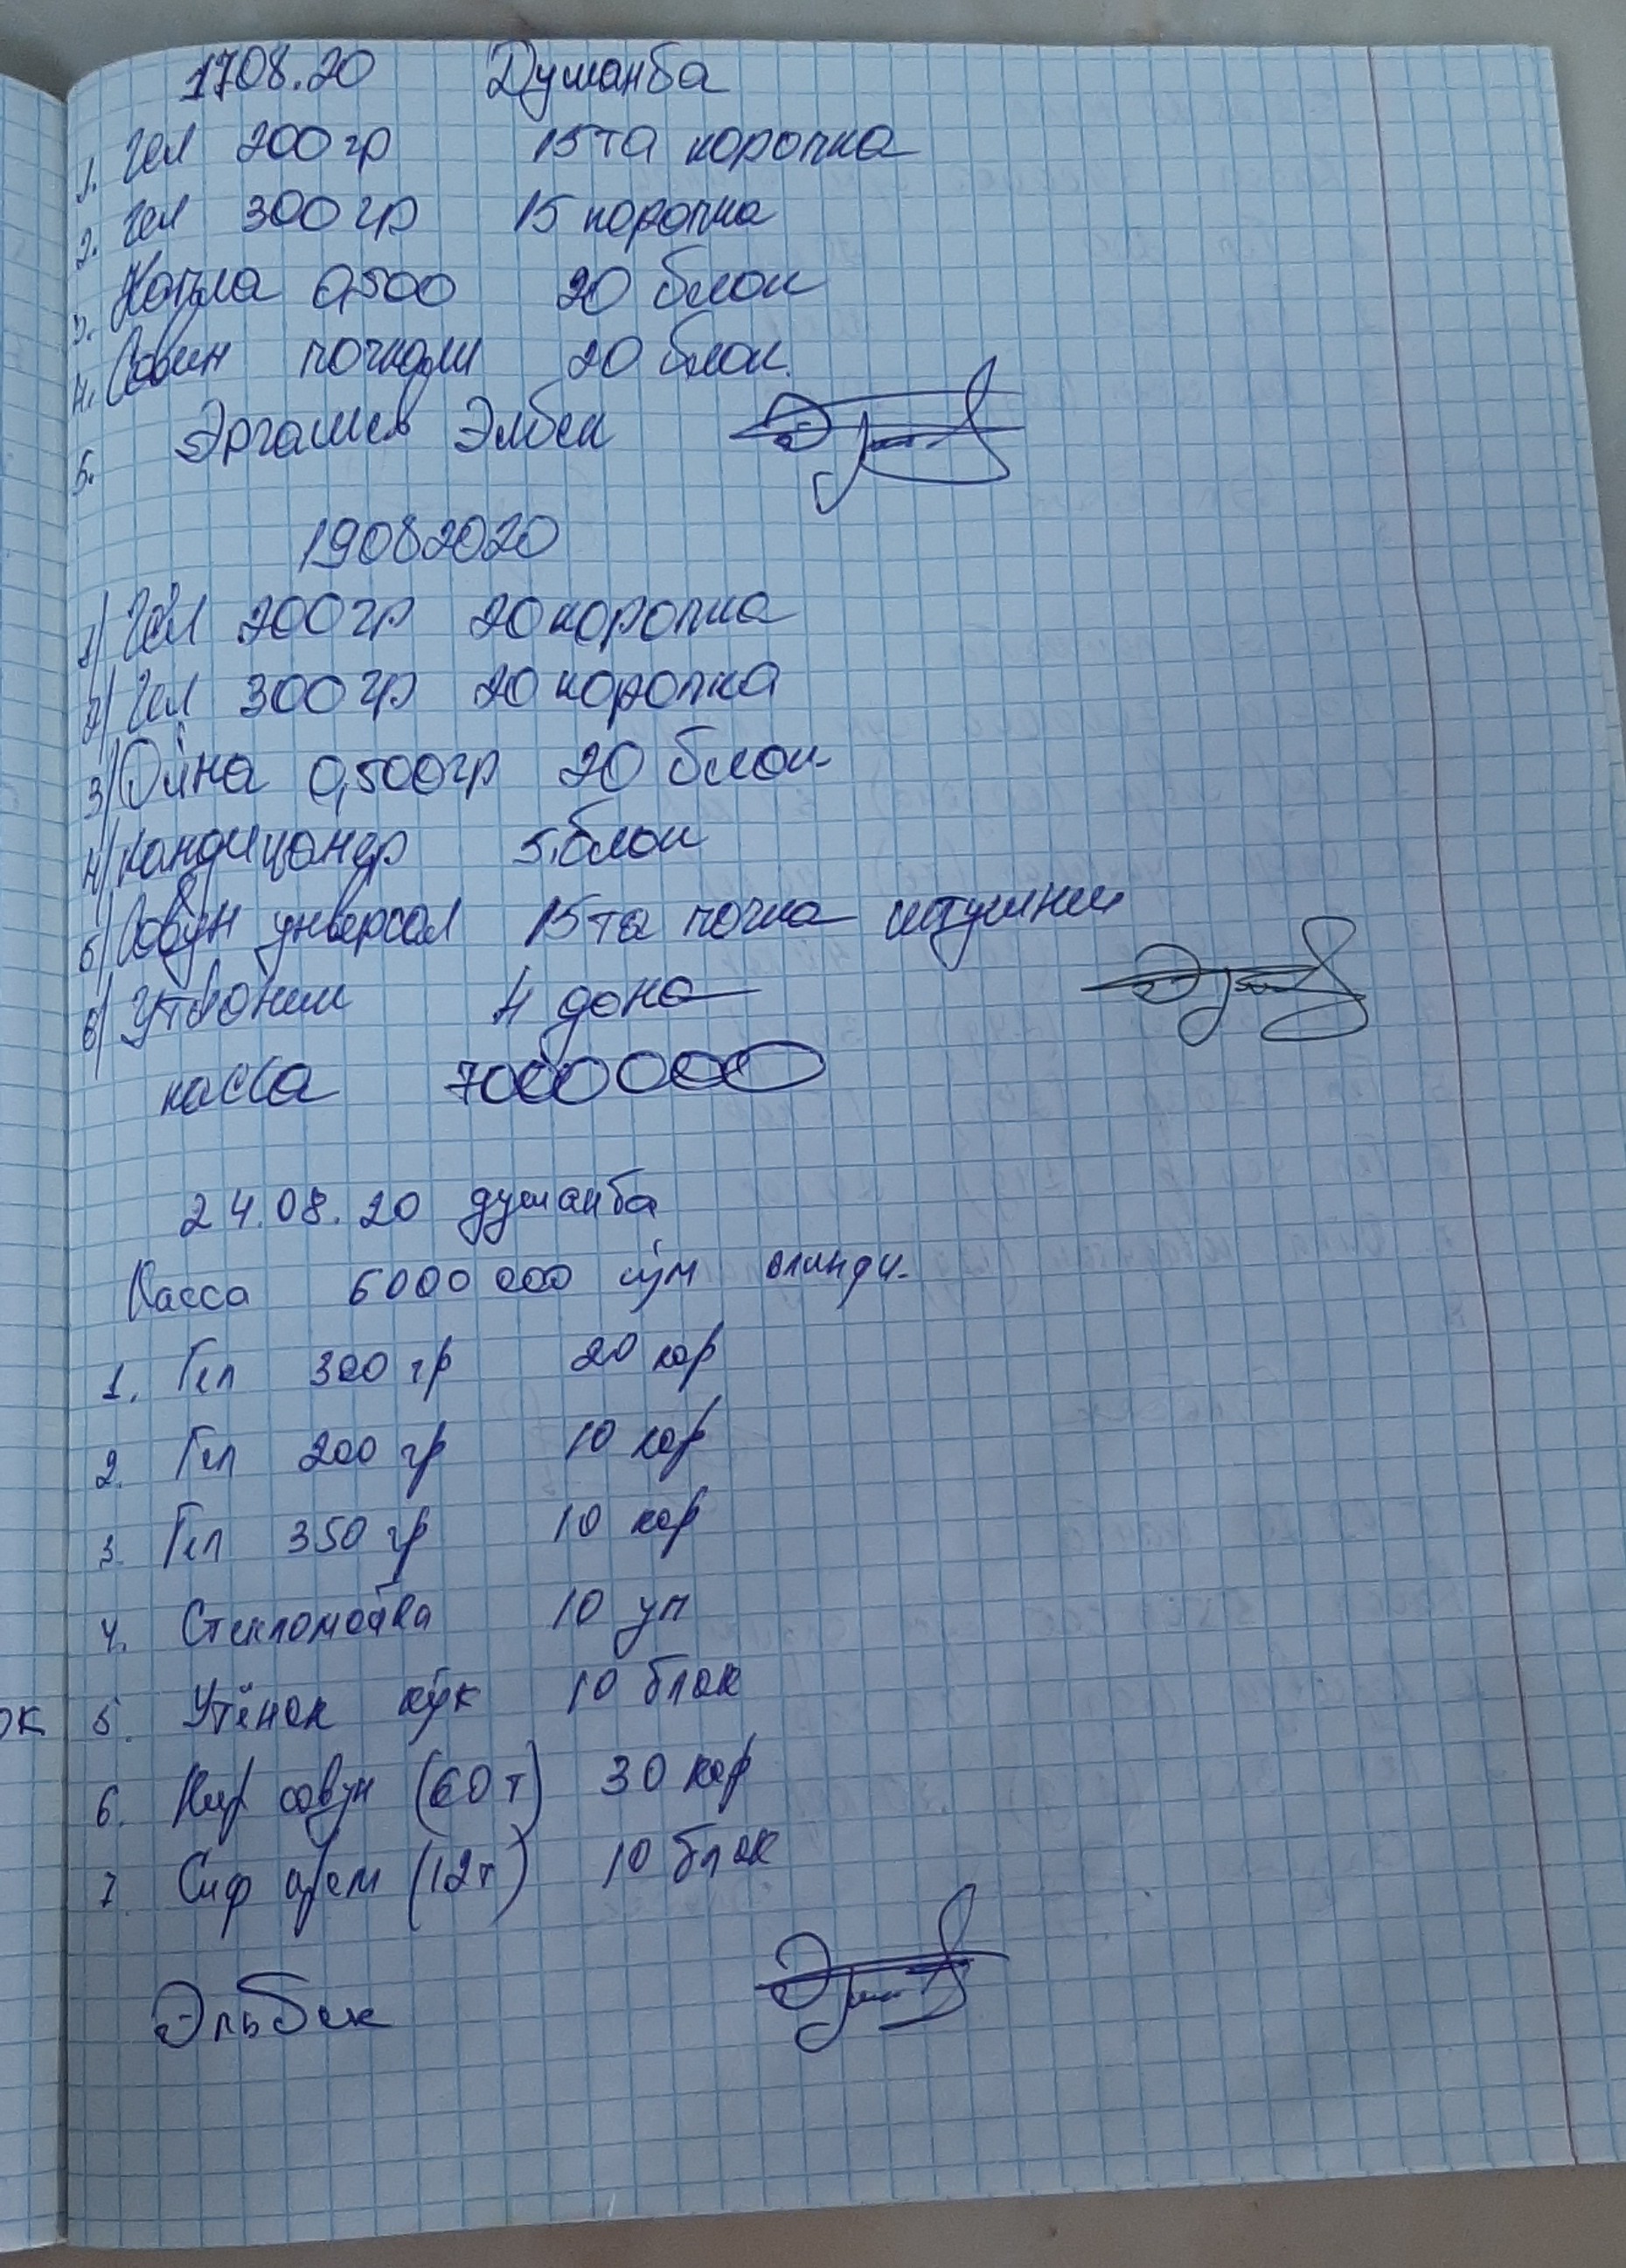 1708.20 Душанба
1. Гел 200гр 15та коропка
2. Гел 300гр 15 коропка
3. Капла 0,500 20 блок
4. Совун почкали 20 блок.
5. Эргашев Элбек
19082020
1) Гел 200гр 20 коропка
2) Гел 300гр 20 коропка
3) Ойна 0,500гр 20 блок
4) кандицонер 5 блок
5) Совун универсал 15та почка
6) 4 дона
касса 7000000
24.08.20 душанба
Касса 6000000 сўм олинди.
1. Гел 300гр 20 кор
2. Гел 200 гр 10 кор
3. Гел 350 гр 10 кор
4. Стекломойка 10 уп
ок
5. Утёнок кўк 10 блок
6. Кир совун (60т) 30 кор
7 Сиф крем (12т) 10 блок
Эльбек